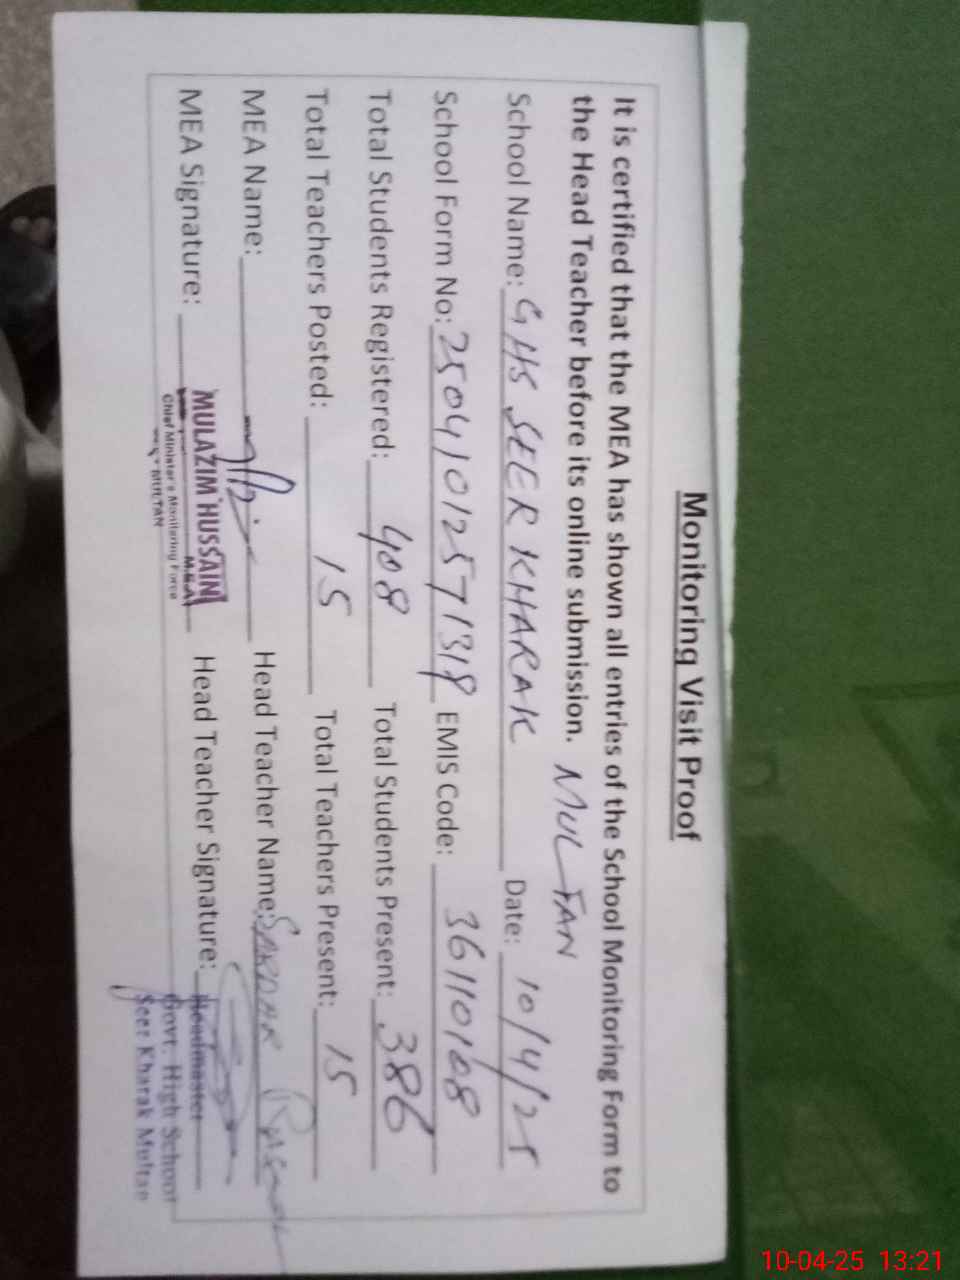 Monitoring Visit Proof
It is certified that the MEA has shown all entries of the School Monitoring Form to
the Head Teacher before its online submission. MULTAN
School Name: GHS SEER KHARAK Date: 10/4/25
School Form No: 25041012571318 EMIS Code: 36110108
Total Students Registered: 408 Total Students Present: 386
Total Teachers Posted: 15 Total Teachers Present: 15
MEA Name: Head Teacher Name: SARDAR
MEA Signature: Head Teacher Signature:
MULAZIM HUSSAIN
M.E.A
Chief Minister's Monitoring Force
MULTAN
Headmaster
Govt. High School
Seer Kharak Multan
10-04-25 13:21